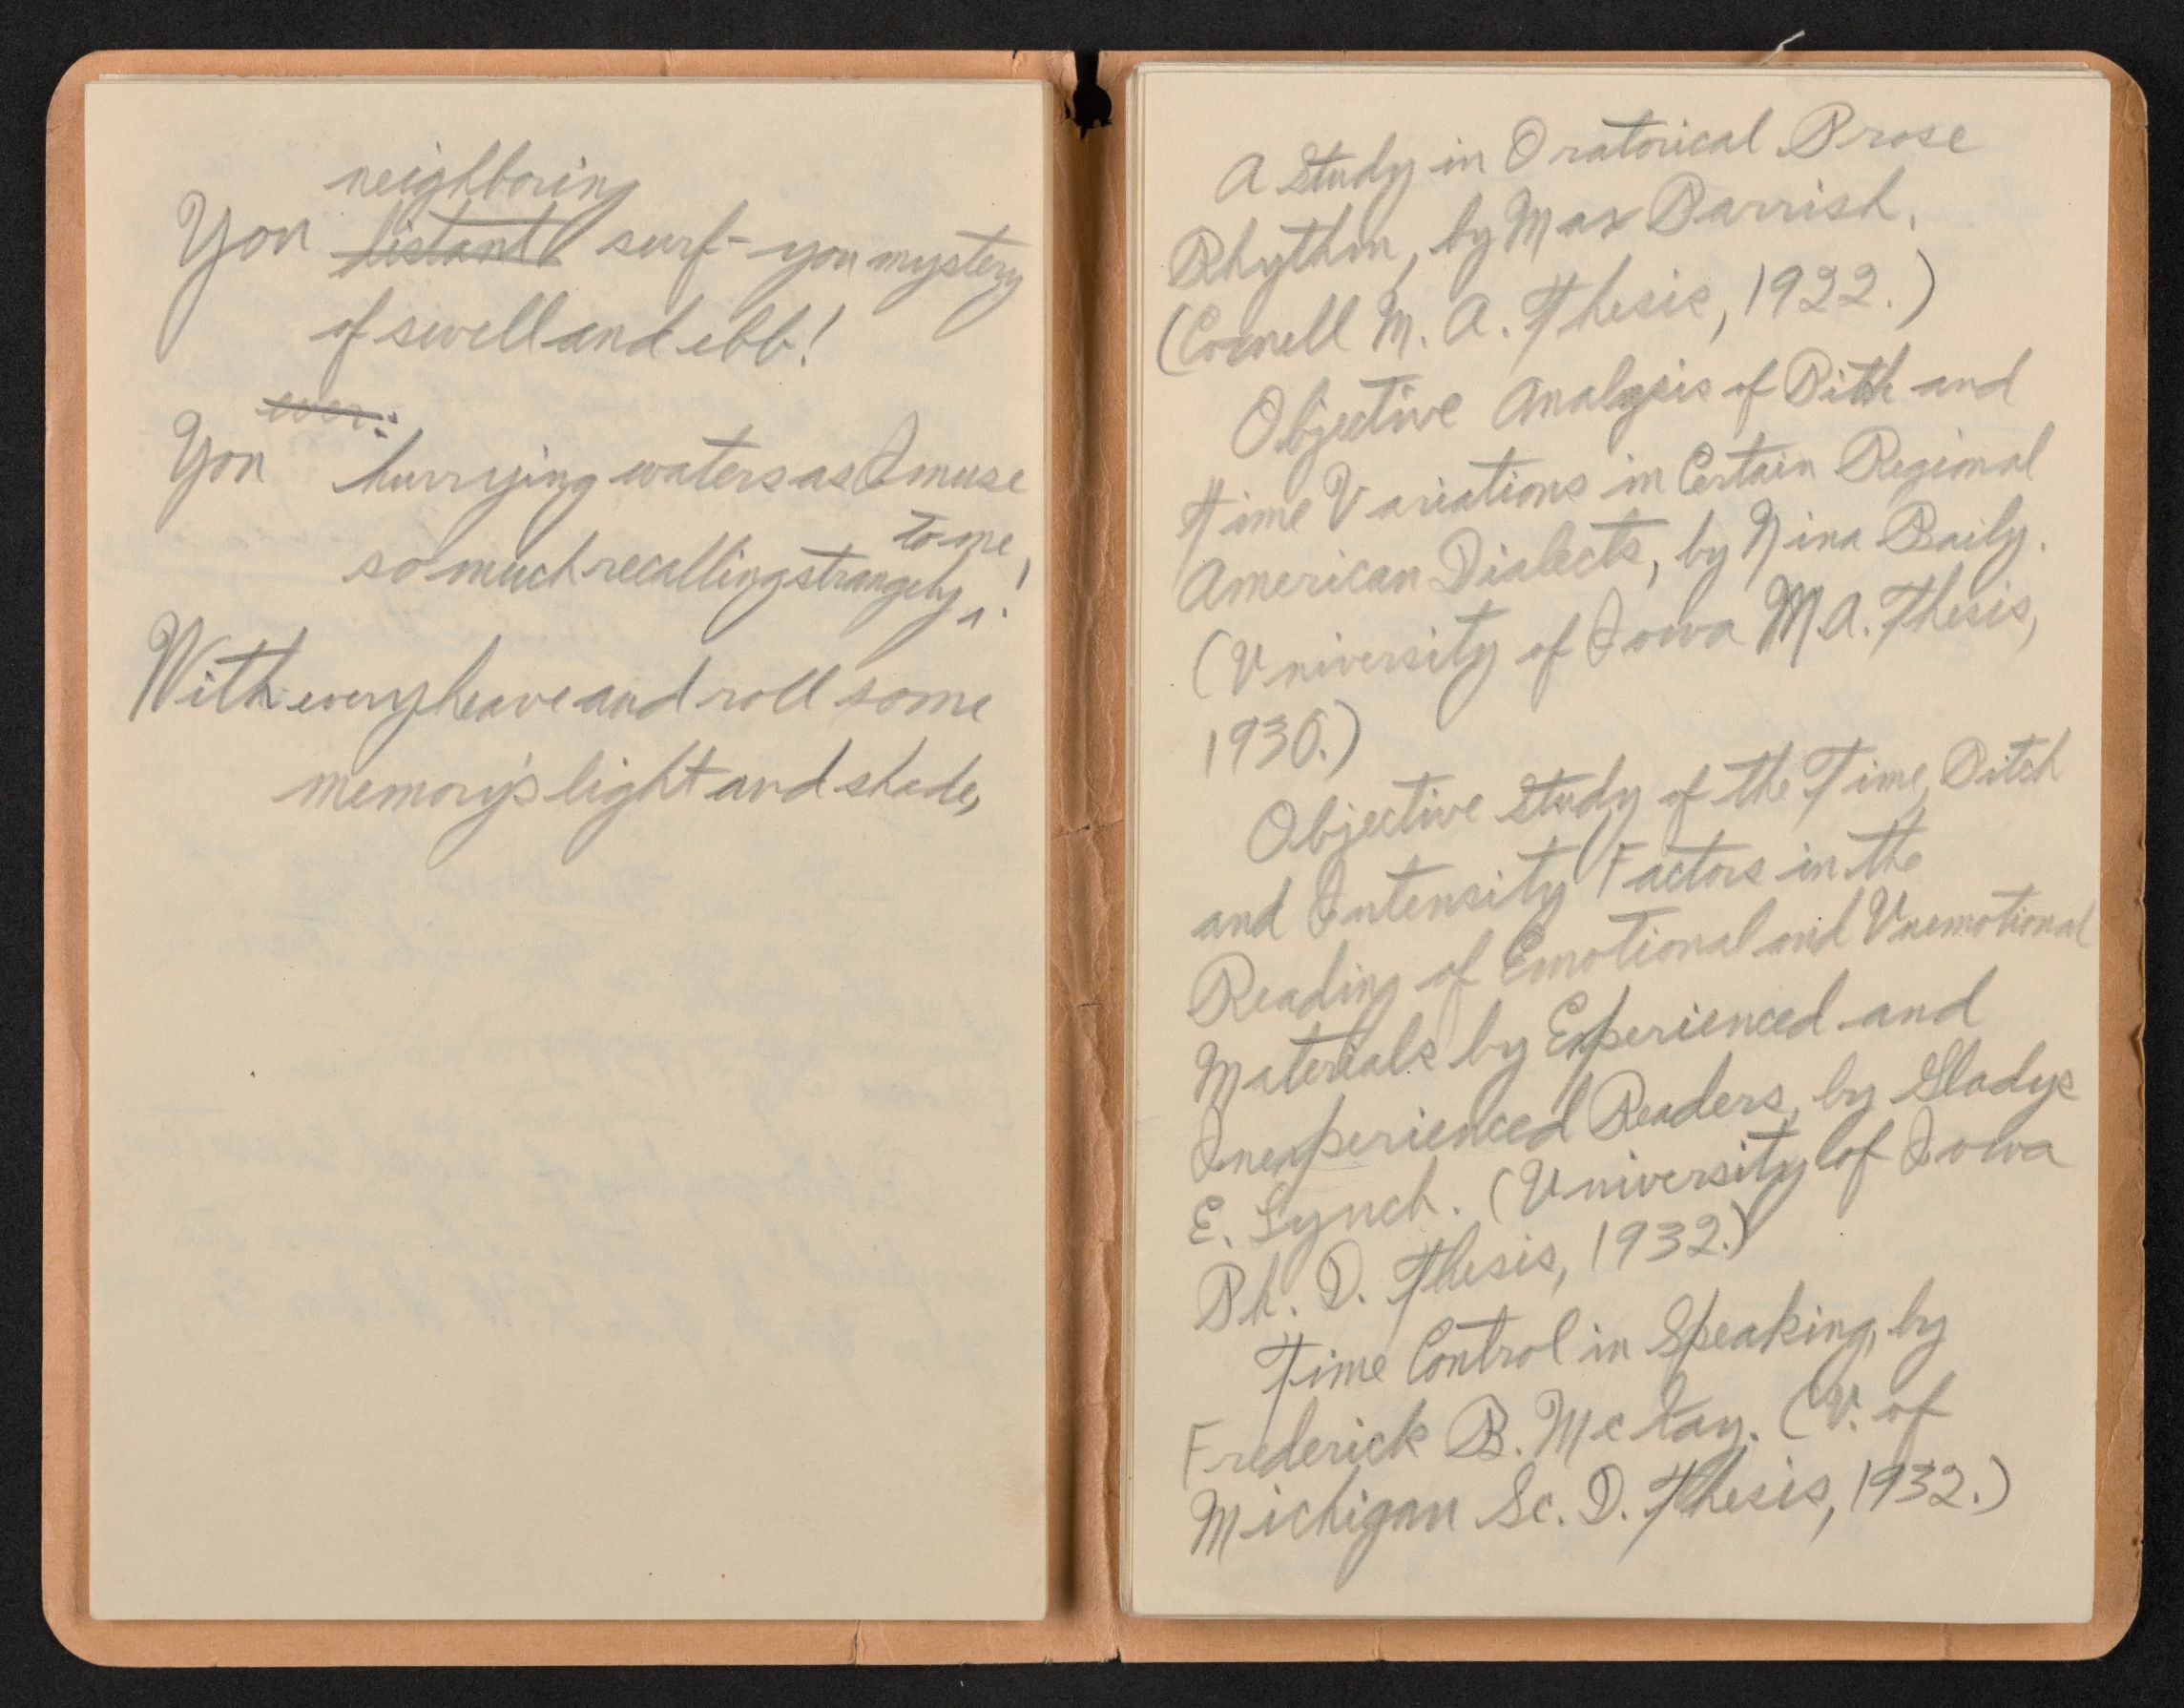 neighboring
Yon distant surf - yon mystery
of swell and ebb!
ever-
Yon hurrying waters as I muse
to me
so much recalling strangely!
With every heave and roll some
memory's light and shade,
A Study in Oratorical Prose
Rhythm, by Max Parrish.
(Cornell M. A. Thesis, 1922.)
Objective Analysis of Pitch and
Time Variations in Certain Regional
American Dialects, by Nina Baily.
(University of Iowa M.A. Thesis,
1930.)
Objective Study of the Time, Pitch
and Intensity Factors in the
Reading of Emotional and Unemotional
Materials by Experienced and
Inexperienced Readers, by Gladys
E. Lynch. (University of Iowa
Ph. D. Thesis, 1932.)
Time Control in Speaking, by
Frederick B. McKay. (U. of
Michigan Sc. D. Thesis, 1932.)